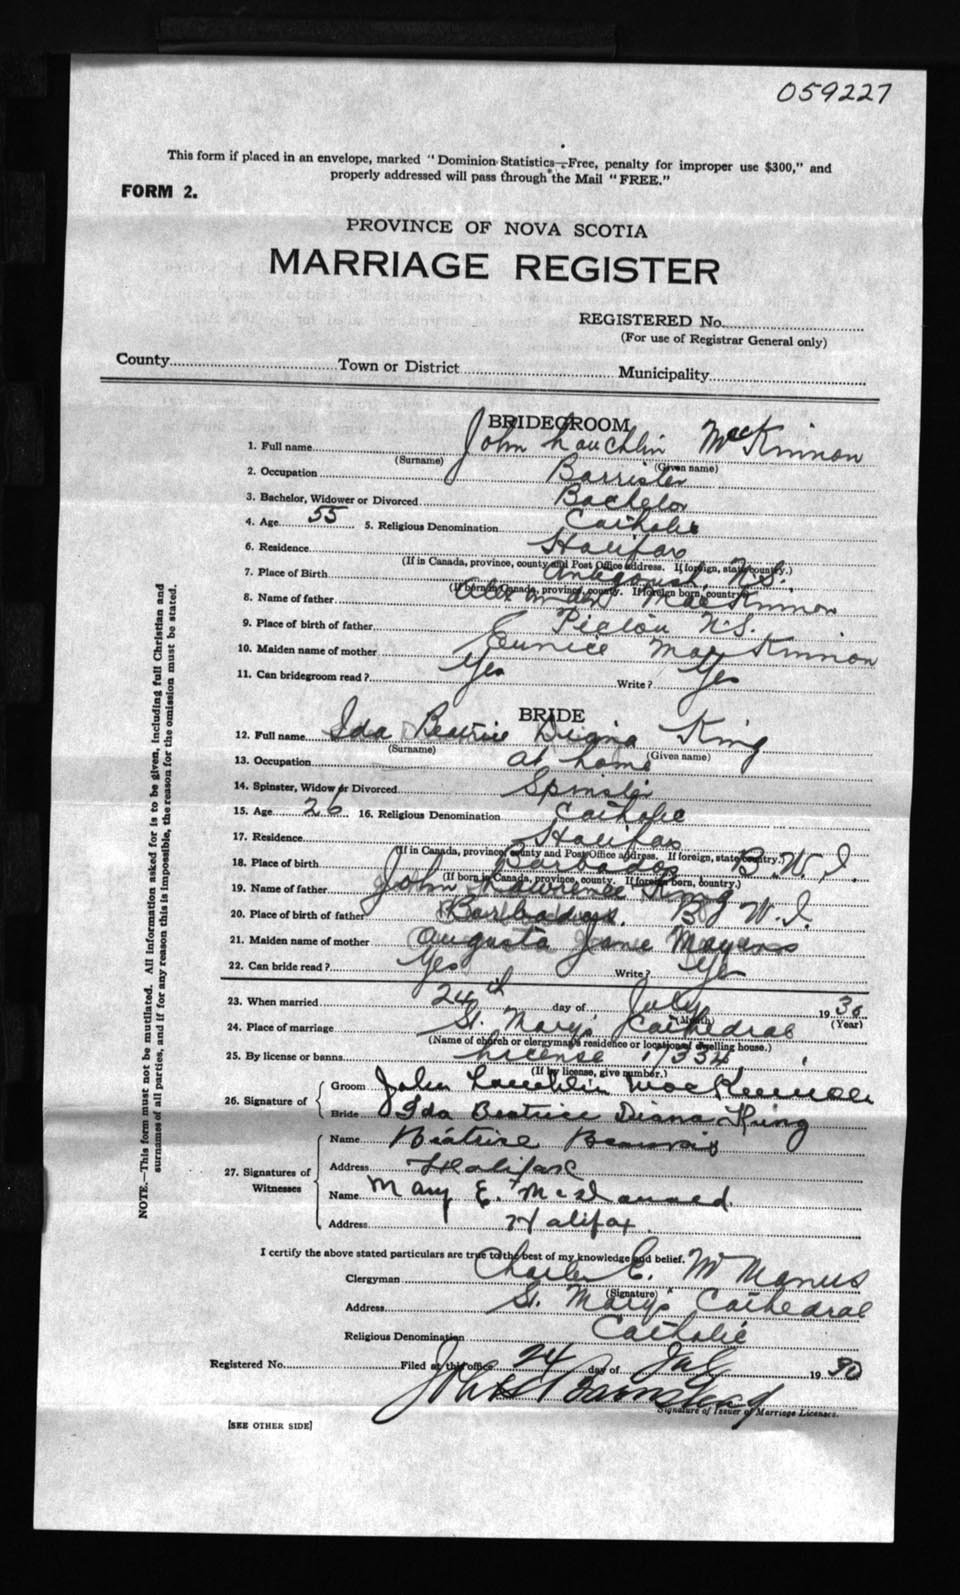 059227
This form if placed in an envelope, marked "Dominion Statistics—Free, penalty for improper use $300," and
properly addressed will pass through the Mail "FREE."
FORM 2.
PROVINCE OF NOVA SCOTIA
MARRIAGE REGISTER
REGISTERED No.
(For use of Registrar General only)
County Town or District Municipality
BRIDEGROOM
1. Full name John Lauchlin MacKinnon
(Surname) (Given name)
2. Occupation Barrister
3. Bachelor, Widower or Divorced Bachelor
4. Age 55 5. Religious Denomination Catholic
6. Residence Halifax
(If in Canada, province, county and Post Office address. If foreign, state country.)
7. Place of Birth Antigonish, N.S.
(If born in Canada, province, county. If foreign born, country.)
8. Name of father Alexander MacKinnon
9. Place of birth of father Pictou N.S.
10. Maiden name of mother Eunice MacKinnon
11. Can bridegroom read? Yes Write? Yes
BRIDE
12. Full name Ida Beatrice Diana King
(Surname) (Given name)
13. Occupation at home
14. Spinster, Widow or Divorced Spinster
15. Age 26 16. Religious Denomination Catholic
17. Residence Halifax
(If in Canada, province, county and Post Office address. If foreign, state country.)
18. Place of birth Barbados B.W.I.
(If born in Canada, province, county. If foreign born, country.)
19. Name of father John Lawrence King
20. Place of birth of father Barbados. B.W.I.
21. Maiden name of mother Augusta Jane Mayers
22. Can bride read? Yes Write? Yes
23. When married 24th day of July 1930
(Month) (Year)
24. Place of marriage St. Marys Cathedral
(Name of church or clergyman's residence or location of dwelling house.)
25. By license or banns License 17334
(If by license, give number.)
26. Signature of Groom John Lauchlin MacKinnon
Bride Ida Beatrice Diana King
27. Signatures of Witnesses Name Beatrice
Address Halifax
Name Mary E.
Address Halifax.
I certify the above stated particulars are true to the best of my knowledge and belief.
Clergyman Charles E. McManus
(Signature)
Address St. Marys Cathedral
Religious Denomination Catholic
Registered No. Filed at this office 24 day of July 1930
John Barnstead
Signature of Issuer of Marriage Licenses.
[SEE OTHER SIDE]
NOTE.—This form must not be mutilated. All information asked for is to be given, including full Christian and
surnames of all parties, and if for any reason this is impossible, the reason for the omission must be stated.